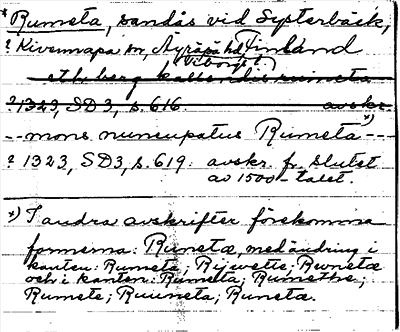 *Rumeta, sandås vid Systerbäck,
? Kivennapa sn, Äyräpää hd, Finland
Viborgs l.
ett berg kallendis rumeta
? 1323, SD3, s. 616. avskr.
-- mons nuncupatus Rumeta *) --
? 1323, SD3, s. 619: avskr. fr. slutet
av 1500-talet.
*) I andra avskrifter förekomma
formerna: Runetæ, med ändring i
kanten: Rumeta; Rijwette; Runetæ
och i kanten: Rumeta; Rumethe;
Rumete; Ruuneta; Runetæ.